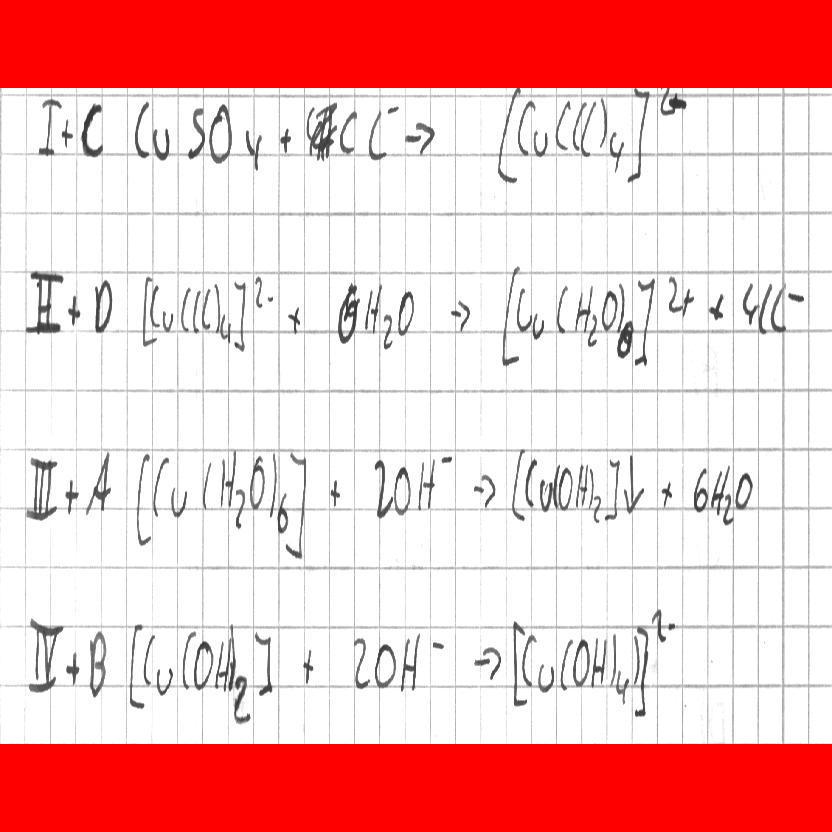 I+C CuSO4 + CCl⁻ → [Cu(Cl)4]
II+D [Cu(Cl)4]²⁻ + 6H2O → [Cu(H2O)6]²⁺ + 4Cl⁻
III+A [Cu(H2O)6] + 2OH⁻ → [Cu(OH)2]↓ + 6H2O
IV+B [Cu(OH)2] + 2OH⁻ → [Cu(OH)4]²⁻